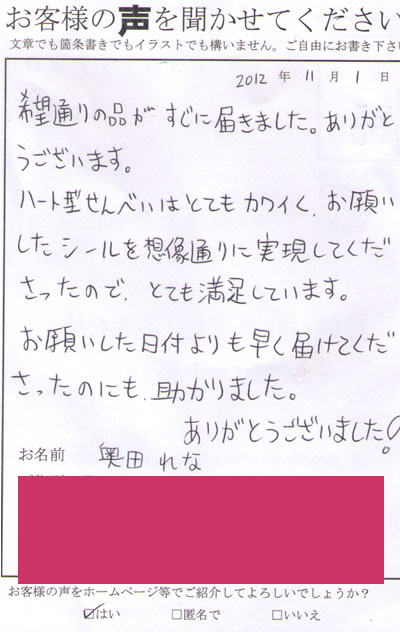 お客様の声を聞かせてください
文章でも箇条書きでもイラストでも構いません。ご自由にお書き下さい
2012 年 11 月 1 日
希望通りの品が すぐに届きました。ありがと
うございます。
ハート型せんべいはとてもカワイく、お願い
したシールを想像通りに実現してくだ
さったので、とても満足しています。
お願いした日付よりも早く届けてくだ
さったのにも、助かりました。
ありがとうございました。
お名前 奥田 れな
お客様の声をホームページ等でご紹介してよろしいでしょうか？
☑はい □匿名で □いいえ